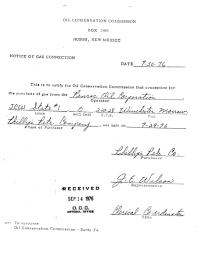 OIL CONSERVATION COMMISSION
BOX 1980
HOBBS, NEW MEXICO
NOTICE OF GAS CONNECTION
DATE 7-30-76
This is to notify the Oil Conservation Commission that connection for
the purchase of gas from the Pennzoil Oil Corporation
Operator
State #1 O 20-28 Winchester Morrow
Lease Well Unit S.T.R. Pool
Phillips Pete. Company, was made on 7-29-76
Name of Purchaser
Phillips Pete. Co.
Purchaser
J. E. Wilson
Representative
Title
RECEIVED
SEP 14 1976
O. C. C.
ARTESIA, OFFICE
To operator
Oil Conservation Commission - Santa Fe